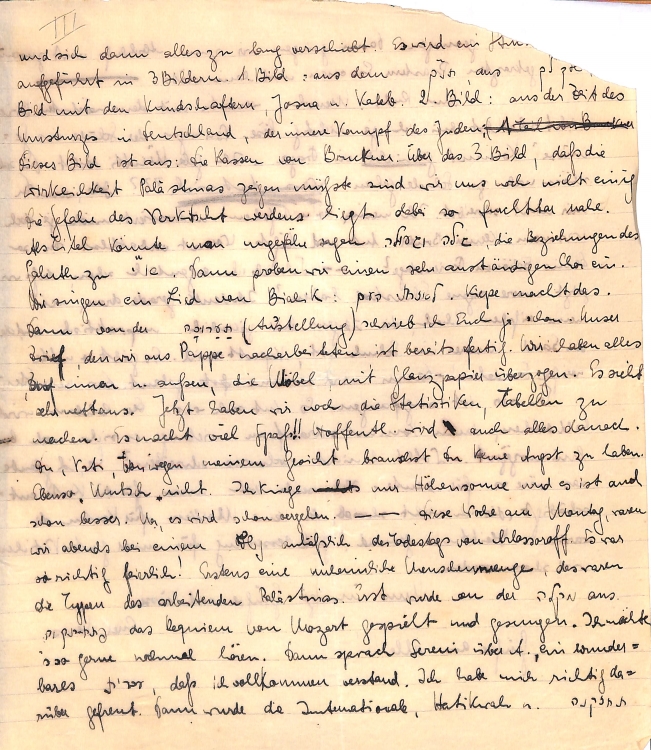 III
und sich dann alles zu lang verschiebt. Es wird ein
aufgeführt in 3 Bildern. 1. Bild : aus dem תנ"ך aus
Bild mit den Kundschaftern, Josua u. Kaleb. 2. Bild : aus der Zeit des
Umsturzes in Deutschland, der innere Kampf des Juden,
Dieses Bild ist aus: Die Rassen von Bruckner. Über das 3 Bild, daß die
Wirklichkeit Palästinas zeigen müßte sind wir uns noch nicht einig
Die Gefahr des Verkitscht werdens liegt dabei so furchtbar nahe.
Als Titel könnte man ungefähr sagen גולה וגאולה die Beziehungen des
Galuth zu א"י. Dann proben wir einen sehr anständigen Chor ein.
Wir singen ein Lied von Bialik : . macht das.
Dann von der תערוכה (Austellung) schrieb ich Euch ja schon. Unser
, den wir aus Pappe nacharbeiteten ist bereits fertig. Wir haben alles
innen u. außen, die Möbel mit Glanzpapier überzogen. Es sieht
sehr nett aus. Jetzt haben wir noch die Statistiken, Tabellen zu
machen. Es macht viel Spaß!! Hoffentl. wird auch alles danach.
Du, Vati wegen meinem Gesicht brauchst Du keine Angst zu haben.
Ebenso Mutsch nicht. Ich kriege nur Höhensonne und es ist auch
schon besser. Na, es wird schon vergehen. — — Diese Woche am Montag, waren
wir abends bei einem anläßlich des Todestags von Arlossoroff. Es war
so richtig feierlich! Erstens eine unheimliche Menschenmenge, das waren
die Typen des arbeitenden Palästinas. Erst wurde von der מקהלה aus
das Requiem von Mozart gespielt und gesungen. Ich möchte
's so gerne nochmal hören. Dann sprach Sereni über A. ein wunder=
bares עברית, daß ich vollkommen verstand. Ich habe mich richtig da=
rüber gefreut. Dann wurde die Internationale, Hatikwah u. תחזקנה